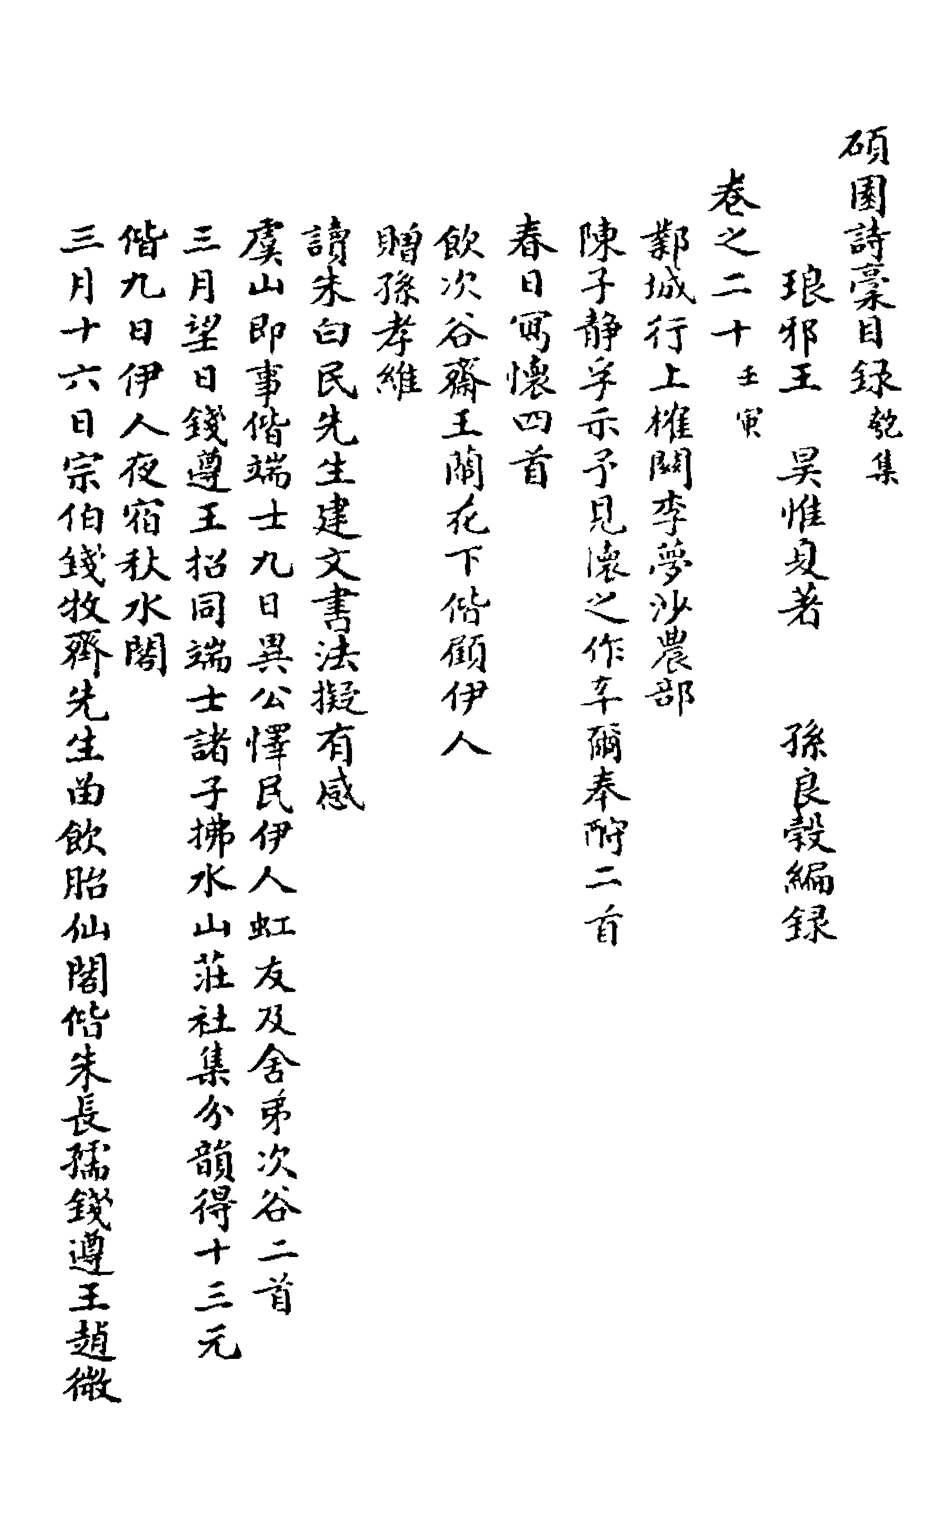 碩園詩稾目録匏集
琅邪王 昊惟夏著 孫良穀編録
卷之二十壬寅
鄴城行上榷關李夢沙農部
陳子静孚示予見懷之作率爾奉酧二首
春日寫懷四首
飲次谷齋王蘭花下偕顧伊人
贈孫孝維
讀朱白民先生建文書法擬有感
虞山即事偕端士九日異公懌民伊人虹友及舍弟次谷二首
三月望日錢遵王招同端士諸子拂水山莊社集分韻得十三元
偕九日伊人夜宿秋水閣
三月十六日宗伯錢牧齋先生留飲胎仙閣偕朱長孺錢遵王趙微